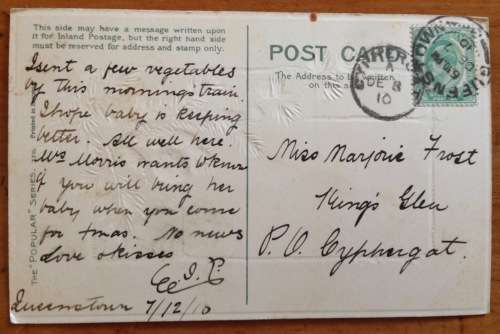 This side may have a message written upon
it for Inland Postage, but the right hand side
must be reserved for address and stamp only.
I sent a few vegetables
by this morning's train.
I hope baby is keeping
better. All well here.
Mrs Morris wants to know
if you will being her
baby when you come
for Xmas. No news
Love & kisses
Queenstown 7/12/10
THE "POPULAR" SERIES.
Printed in
POST CARD
The Address to be written
on this
DE 8
10
QUEENSTOWN
Miss Marjorie Frost
King's Glen
P. O. Cyphergat.